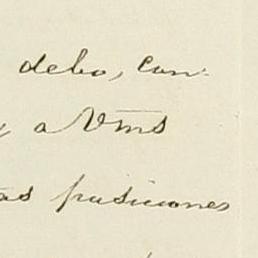 debo, con-
a Vms
as posiciones